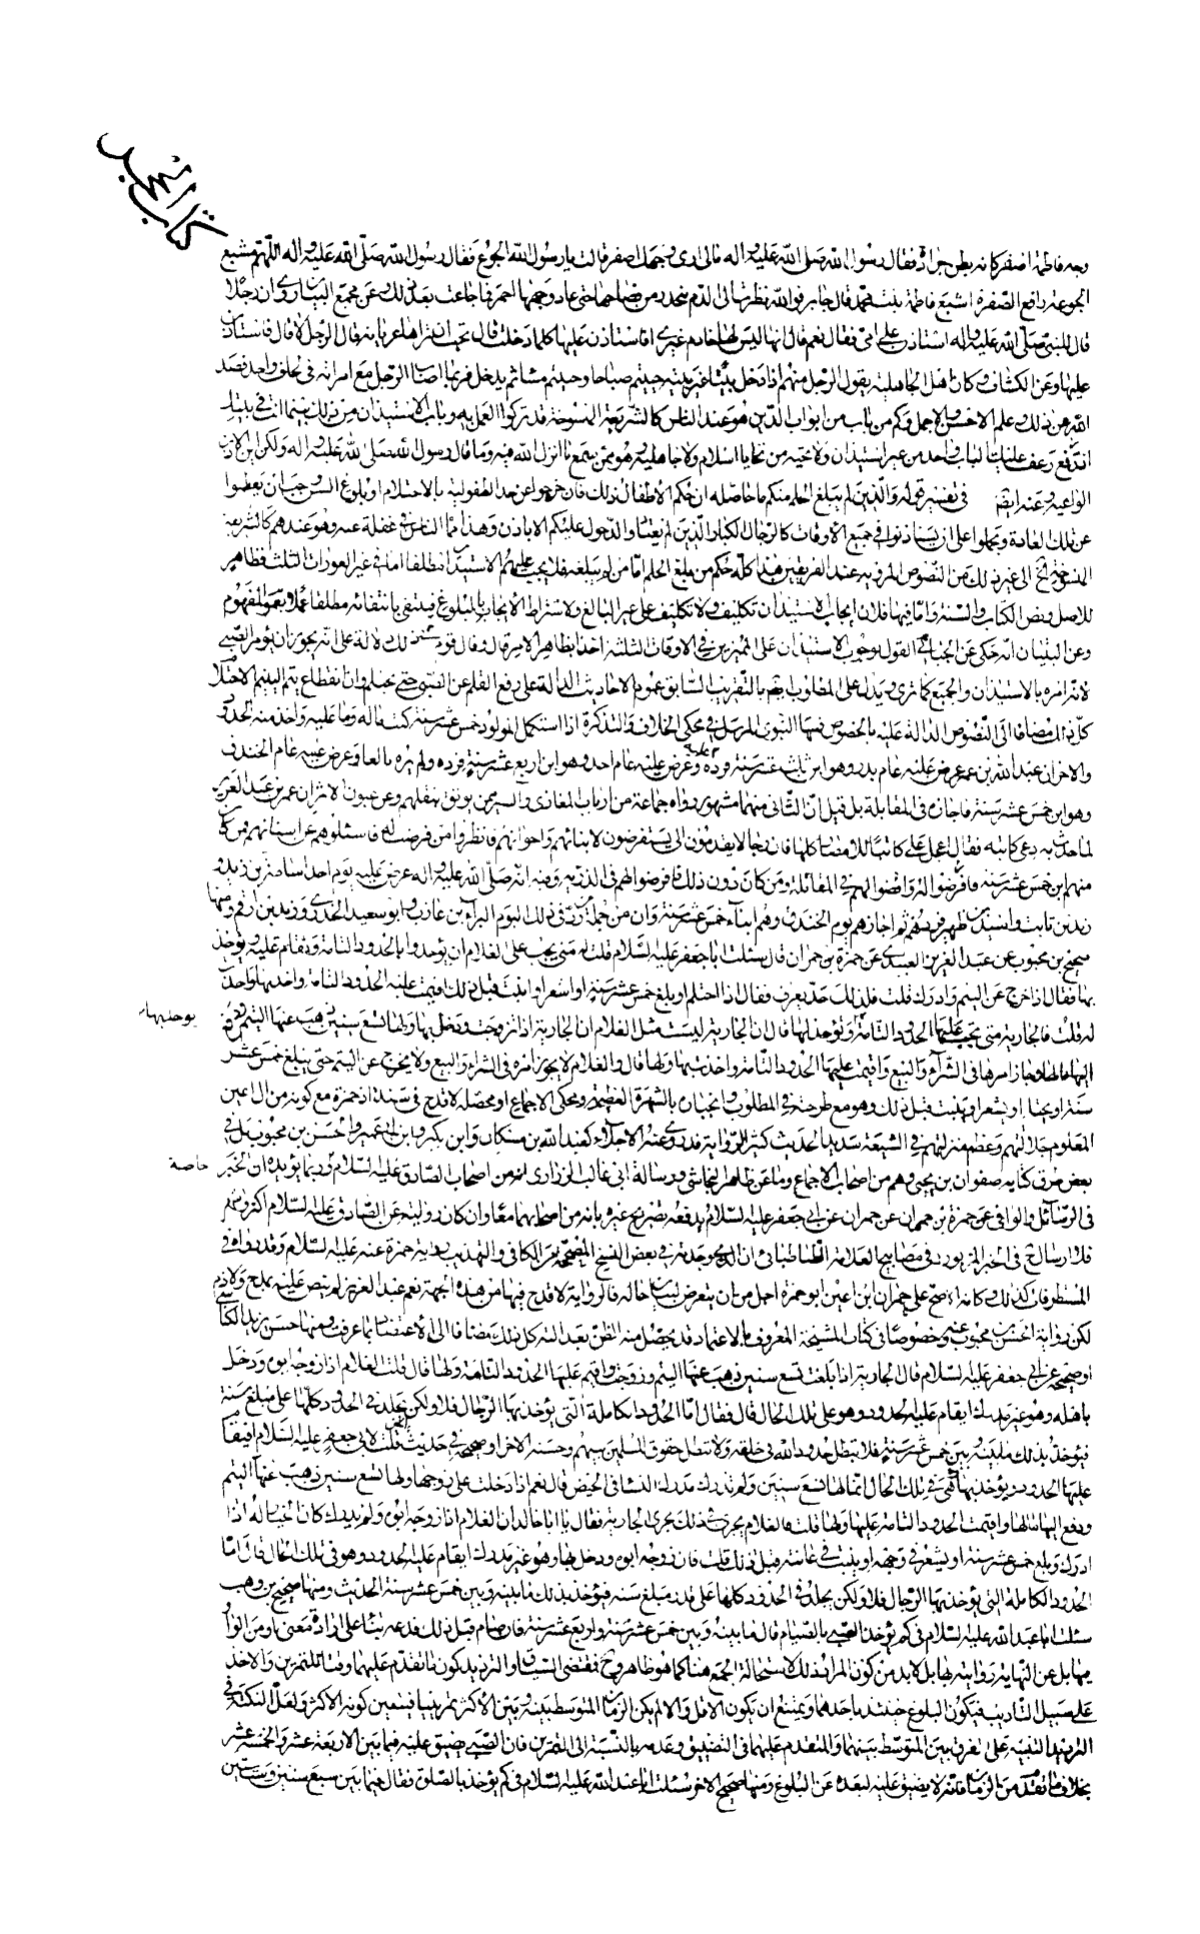 كتاب الحجر
وجه فاطمة اصفر كانه بطن جرادة فقال رسول الله صلى الله عليه واله مالى ارى وجهك اصفر قالت يا رسول الله الجوع فقال رسول الله صلى الله عليه واله اللهم مشبع
الجوعة رافع الصفرة اشبع فاطمة بنت محمد قال جابر فوالله نظرت الى الدم ينحدر من قصاصها حتى عاد وجهها احمر فما جاعت بعد ذلك وعن مجمع البيان روى ان رجلا
قال للنبى صلى الله عليه واله استاذن على امى فقال نعم قال انها ليس لها خادم غيرى افاستاذن عليها كلما دخلت قال تحب ان تراها عريانة قال الرجل لا قال فاستاذن
عليها وعن الكشاف وكان اهل الجاهلية يقول الرجل منهم اذا دخل بيتا غير بيته حييتم صباحا وحييتم مساء ثم يدخل فربما اصاب الرجل مع امراته فى لحاف واحد فصد
الله عن ذلك وعلم الاحسن والاجمل وكم من باب من ابواب الدين هو عند الناس كالشريعة المنسوخة قد تركوا العمل به وباب الاستيذان من ذلك بينما انت فى بيتك
اذ رعف عليك الباب واحد من غير استيذان ولا تحية من تحايا اسلام ولا جاهلية وهو ممن سمع ما انزل الله فيه وما قال رسول الله صلى الله عليه واله ولكن اين الاذن
الواعية وعنه ايضا فى تفسير قوله والذين لم يبلغوا الحلم منكم ما حاصله ان حكم الاطفال ذلك فان خرجوا عن حد الطفولية بالاحتلام او بلوغ السن وجب ان يفطموا
عن تلك العادة ويحملوا على ان يستاذنوا فى جميع الاوقات كالرجال الكبار الذين لم يعتادوا الدخول عليكم الا باذن وهذا مما الناس فى غفلة عنه وهو عندهم كالشريعة
المنسوخة الخ الى غير ذلك من النصوص المروية عند الفريقين هذا كله حكم من بلغ الحلم اما من لم يبلغه فلا يجب عليهم الاستيذان مطلقا اما فى غير العورات الثلث فظاهر
للاصل ونص الكتاب والسنة واما فيها فلان ايجاب الاستيذان تكليف ولا تكليف على غير البالغ ولاشتراط الايجاب بالبلوغ فينتفى بانتفائه مطلقا عملا بعموم المفهوم
وعن التبيان انه حكى عن الجبائى القول بوجوب الاستيذان على المميزين فى الاوقات الثلثة اخذا بظاهر الامر قال وقال قوم فى ذلك دلالة على انه يجوز ان يؤمر الصبى
لانه امره بالاستيذان والجميع كما ترى ويدل على المطلوب ايضا بالتقريب السابق عموم الاحاديث الدالة على رفع القلم عن الصبى حتى يحتلم وانقطاع يتم اليتيم بالاحتلام
كل ذلك مضافا الى النصوص الدالة عليه بالخصوص فمنها النبوى المرسل فى محكى الخلاف والتذكرة اذا استكمل المولود خمس عشرة سنة كتب ما له وما عليه واخذ منه الحدود
والاخر ان عبد الله بن عمر عرض عليه عام بدر وهو ابن ثلث عشرة سنة فرده وعرض عليه عام احد وهو ابن اربع عشرة سنة فرده ولم يره بالغا وعرض عليه عام الخندق
وهو ابن خمس عشرة سنة فاجازه فى المقاتلة بل قيل ان الثانى منهما مشهور رواه جماعة من ارباب المغازى والسير ممن يوثق بنقلهم وعن عيون الاثر ان عمر بن عبد العزيز
لما حدث به دعى كاتبه فقال اعجل على كاتبا للامصار كلها فان رجالا يقدمون الى يستفرضون لابنائهم واخوانهم فانظروا من فرضت له فاسئلوهم عن اسنانهم فمن كان
منهم ابن خمس عشرة سنة فافرضوا له وافرضوا لهم فى المقاتلة ومن كان دون ذلك فافرضوا لهم فى الذرية وفيه انه صلى الله عليه واله عرض عليه يوم احد اسامة بن زيد و
زيد بن ثابت واسيد بن ظهير فردهم ثم اجازهم يوم الخندق وهم ابناء خمس عشرة سنة وان من جملة من رد فى ذلك اليوم البراء بن عازب وابو سعيد الخدرى وزيد بن ارقم ومنها
صحيح بن محبوب عن عبد العزيز العبدى عن حمزة بن حمران قال سئلت ابا جعفر عليه السلام قلت له متى يجب على الغلام ان يؤخذ بالحدود التامة وتقام عليه ويؤخذ
بها فقال اذا خرج عن اليتم وادرك قلت فلذلك حد يعرف فقال اذا احتلم او بلغ خمس عشرة سنة او اشعر او انبت قبل ذلك اقيمت عليه الحدود التامة واخذ بها واخذت
له قلت فالجارية متى يجب عليها الحدود التامة وتؤخذ لها قال ان الجارية ليست مثل الغلام ان الجارية اذا تزوجت ودخل بها ولها تسع سنين ذهب عنها اليتم ودفع
يؤخذ بها
اليها مالها وجاز امرها فى الشراء والبيع واقيمت عليها الحدود التامة واخذت بها ولها قال والغلام لا يجوز امره فى الشراء والبيع ولا يخرج عن اليتم حتى يبلغ خمس عشر
سنة او يحتلم او يشعر او ينبت قبل ذلك وهو مع طرحته فى المطلوب وانجباره بالشهرة العظيمة ومحكى الاجماع او محصله لا قدح فى سنده اذ حمزة مع كونه من ال اعين
المعلوم جلالتهم وعظم منزلتهم فى الشيعة سديد الحديث كثير الرواية قد روى عنه الاجلاء كعبد الله بن مسكان وابن بكير وابن ابى عمير والحسن بن محبوب بل فى
بعض طرق كتابه صفوان بن يحيى وهم من اصحاب الاجماع وما عن ظاهر النجاشى ورسالة ابى غالب الزرارى انه من اصحاب الصادق عليه السلام وربما يؤيده ان الخبر
خاصة
فى الرسائل والوافى عن حمزة بن حمران عن حمران عن ابى جعفر عليه السلام يدفعه تصريح غيره بانه من اصحابهما معا وان كان روايته عن الصادق عليه السلام اكثر ومنهم
فلا ارسال فى الخبر المزبور وفى مصابيح العلامة الطباطبائى ان الموجود فى بعض النسخ المصححة من الكافى والتهذيب رواية حمزة عنه عليه السلام وقد رواه فى
المستطرفات كذلك وكانه اصح على حمران ابن اعين ابو حمزة اجل من ان يتعرض لبيان حاله فالرواية لا قدح فيها من هذه الجهة نعم عبد العزيز لم ينص عليه بمدح ولا ذم
لكن رواية الحسن بن محبوب عنه وخصوصا فى كتاب المشيخة المعروف بالاعتماد قد يحصل منه الظن بعدالته كل ذلك مضافا الى الاعتضاد بما عرفت ومنها حسن يزيد الكناسى
او صحيحه عن ابى جعفر عليه السلام قال الجارية اذا بلغت تسع سنين ذهب عنها اليتم وزوجت واقيم عليها الحدود التامة ولها قال قلت الغلام اذا زوجه ابوه ودخل
باهله وهو غير مدرك ايقام عليه الحدود وهو على تلك الحال قال فقال اما الحدود الكاملة التى يؤخذ بها الرجال فلا ولكن يجلد فى الحدود كلها على مبلغ سنه
فيؤخذ بذلك ما بينه وبين خمس عشرة سنة فلا تبطل حدود الله فى خلقه ولا تبطل حقوق المسلمين بينهم وحسنه الاخر او صحيحه فى حديث قلت لابى جعفر عليه السلام افيقام
عليها الحدود ويؤخذ بها وهى فى تلك الحال انما لها تسع سنين ولم تدرك مدرك النساء فى الحيض قال نعم اذا دخلت على زوجها ولها تسع سنين ذهب عنها اليتم
ودفع اليها مالها واقيمت الحدود التامة عليها ولها قلت فالغلام يجرى فى ذلك مجرى الجارية فقال يا ابا خالد ان الغلام اذا زوجه ابوه ولم يدرك كان الخيار له اذا
ادرك وبلغ خمس عشرة سنة او يشعر فى وجهه او ينبت فى عانته قبل ذلك قلت فان زوجه ابوه ودخل بها وهو غير مدرك ايقام عليه الحدود وهو فى تلك الحال قال اما
الحدود الكاملة التى يؤخذ بها الرجال فلا ولكن يجلد فى الحدود كلها على قدر مبلغ سنه فيؤخذ بذلك ما بينه وبين خمس عشرة سنة الحديث ومنها صحيح بن وهب
سئلت ابا عبد الله عليه السلام فى كم يؤخذ الصبى بالصيام قال ما بينه وبين خمس عشرة سنة واربع عشرة سنة فان صام قبل ذلك فدعه بناء على ارادة معنى او من الواو
فيها بل عن النهاية روايته لها بل لابد من كون المراد ذلك لاستحالة الجمع هنا كما هو ظاهر وح فمقتضى السياق والترديد كون ما تقدم عليهما وقتا للتمرين والاخذ
على سبيل التاديب فيكون البلوغ حينئذ باحدهما ويمتنع ان يكون الاقل والا لم يكن الزمان المتوسط بينه وبين الاكثر تمرينيا فيتعين كونه الاكثر ولعل النكتة فى
الترديد التنبيه على الفرق بين المتوسط بينهما والمتقدم عليهما فى التضييق وعدمه بالنسبة الى التمرين فان الصبى يضيق عليه فيما بين الاربعة عشر والخمسة عشر
بخلاف ما تقدم من الزمان فانه لا يضيق عليه لبعده عن البلوغ ومنها صحيح الاخر سئلت ابا عبد الله عليه السلام فى كم يؤخذ بالصلوة فقال فيما بين سبع سنين وست سنين